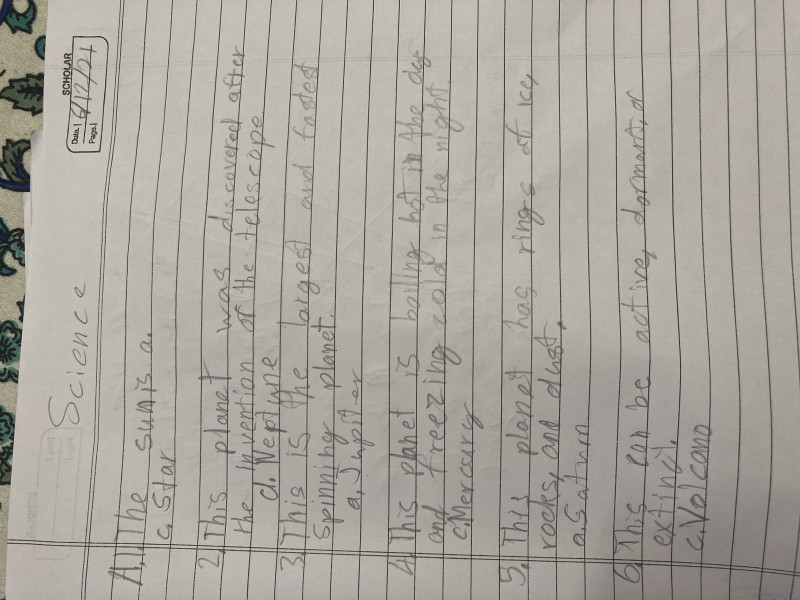 SCHOLAR
Date | 8/12/21
Page |
Science
A.1. The sun is a.
c. Star
2. This planet was discovered after
the invention of the telescope
d. Neptune
3. This is the largest and fastest
spinning planet.
a. Jupiter
4. This planet is boiling hot in the day
and freezing cold in the night.
c. Mercury
5. This planet has rings of ice,
rocks, and dust.
a. Saturn
6. This can be active, dormant, or
extinct.
c. Volcano